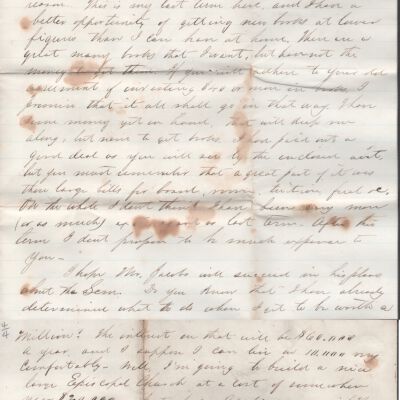 reason. This is my last term here, and I have a
better opportunity of getting new books at lower
figures than I can have at home. There are a
great many books that I want, but have not the
money to get them. If you will adhere to your old
agreement of our selling $ or more in books, I
promise that it all shall go in that way. I have
some money yet on hand, that will keep me
along, but none to get books. I have paid out a
good deal as you will see by the enclosed acct,
but you must remember that a great part of it was
those large bills for board, room, tuition, fuel &c.
On the whole I don't think I have been any more
(or as much) as last term. After this
term I don't propose to be much expense to
you —
I hope Mr. Jacobs will succeed in his plans
about the Sem. Do you know that I have already
determined what to do when I get to be worth a
Million? The interest on that will be $60,000
a year, and I suppose I can live on 10,000 very
comfortably. Well, I'm going to build a nice
large Episcopal Church at a cost of somewhere
near